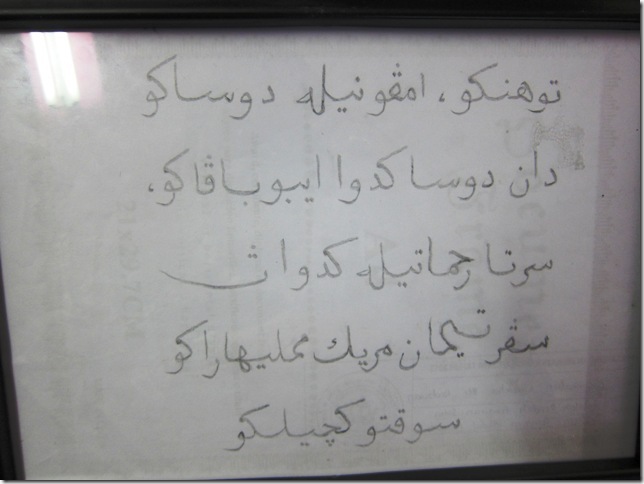 توهنكو، امڤونيله دوساكو
دان دوسا كدوا ايبو باڤاكو،
سرتا رحماتيله كدوا ث
سڤرتيمان مريك ممليهاراكو
سوقتو كچيلكو